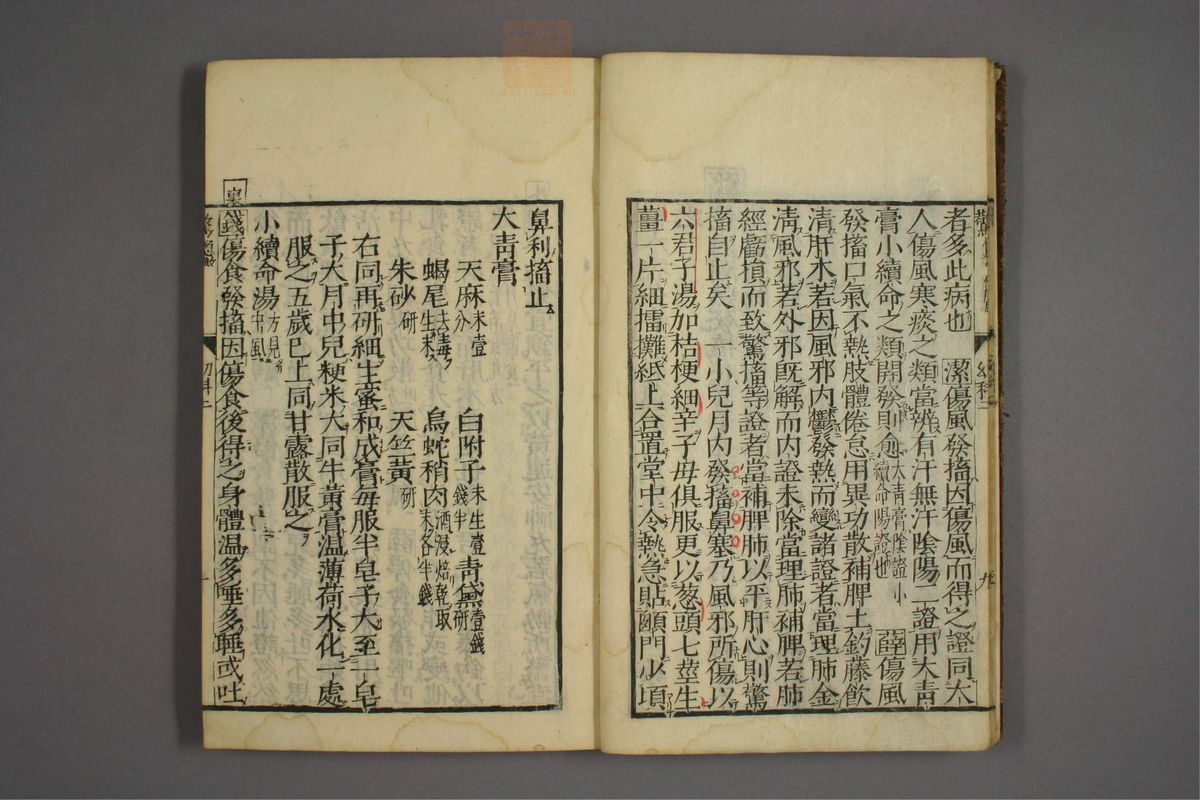 者多此病也　潔傷風發搐因傷風而得之證同大
人傷風寒痰之類當辨有汗無汗陰陽二證用大青
膏小續命之類開發則愈大青膏陰證小續命陽證也　薛傷風
發搐口氣不熱肢體倦怠用異功散補脾土鈎藤飲
清肝木若因風邪內鬱發熱而變諸證者當理肺金
清風邪若外邪既解而內證未除當理肺補脾若肺
經虧損而致驚搐等證者當補脾肺以平肝心則驚
搐自止矣　一小兒月內發搐鼻塞乃風邪所傷以
六君子湯加桔梗細辛子母俱服更以葱頭七莖生
薑一片細擂攤紙上合置掌中令熱急貼顖門少頃
幼科二
九
鼻利搐止
大青膏
天麻末壹分　白附子末生壹錢半　青黛研壹錢
蝎尾去毒生末　烏蛇稍肉酒浸焙乾取末各半錢
朱砂研　天竺黃研
右同再研細生蜜和成膏每服半皂子大至一皂
子大月中兒粳米大同牛黃膏溫薄荷水化一處
服之五歲已上同甘露散服之
小續命湯方見中風
裏
錢傷食發搐因傷食後得之身體溫多睡多唾或吐